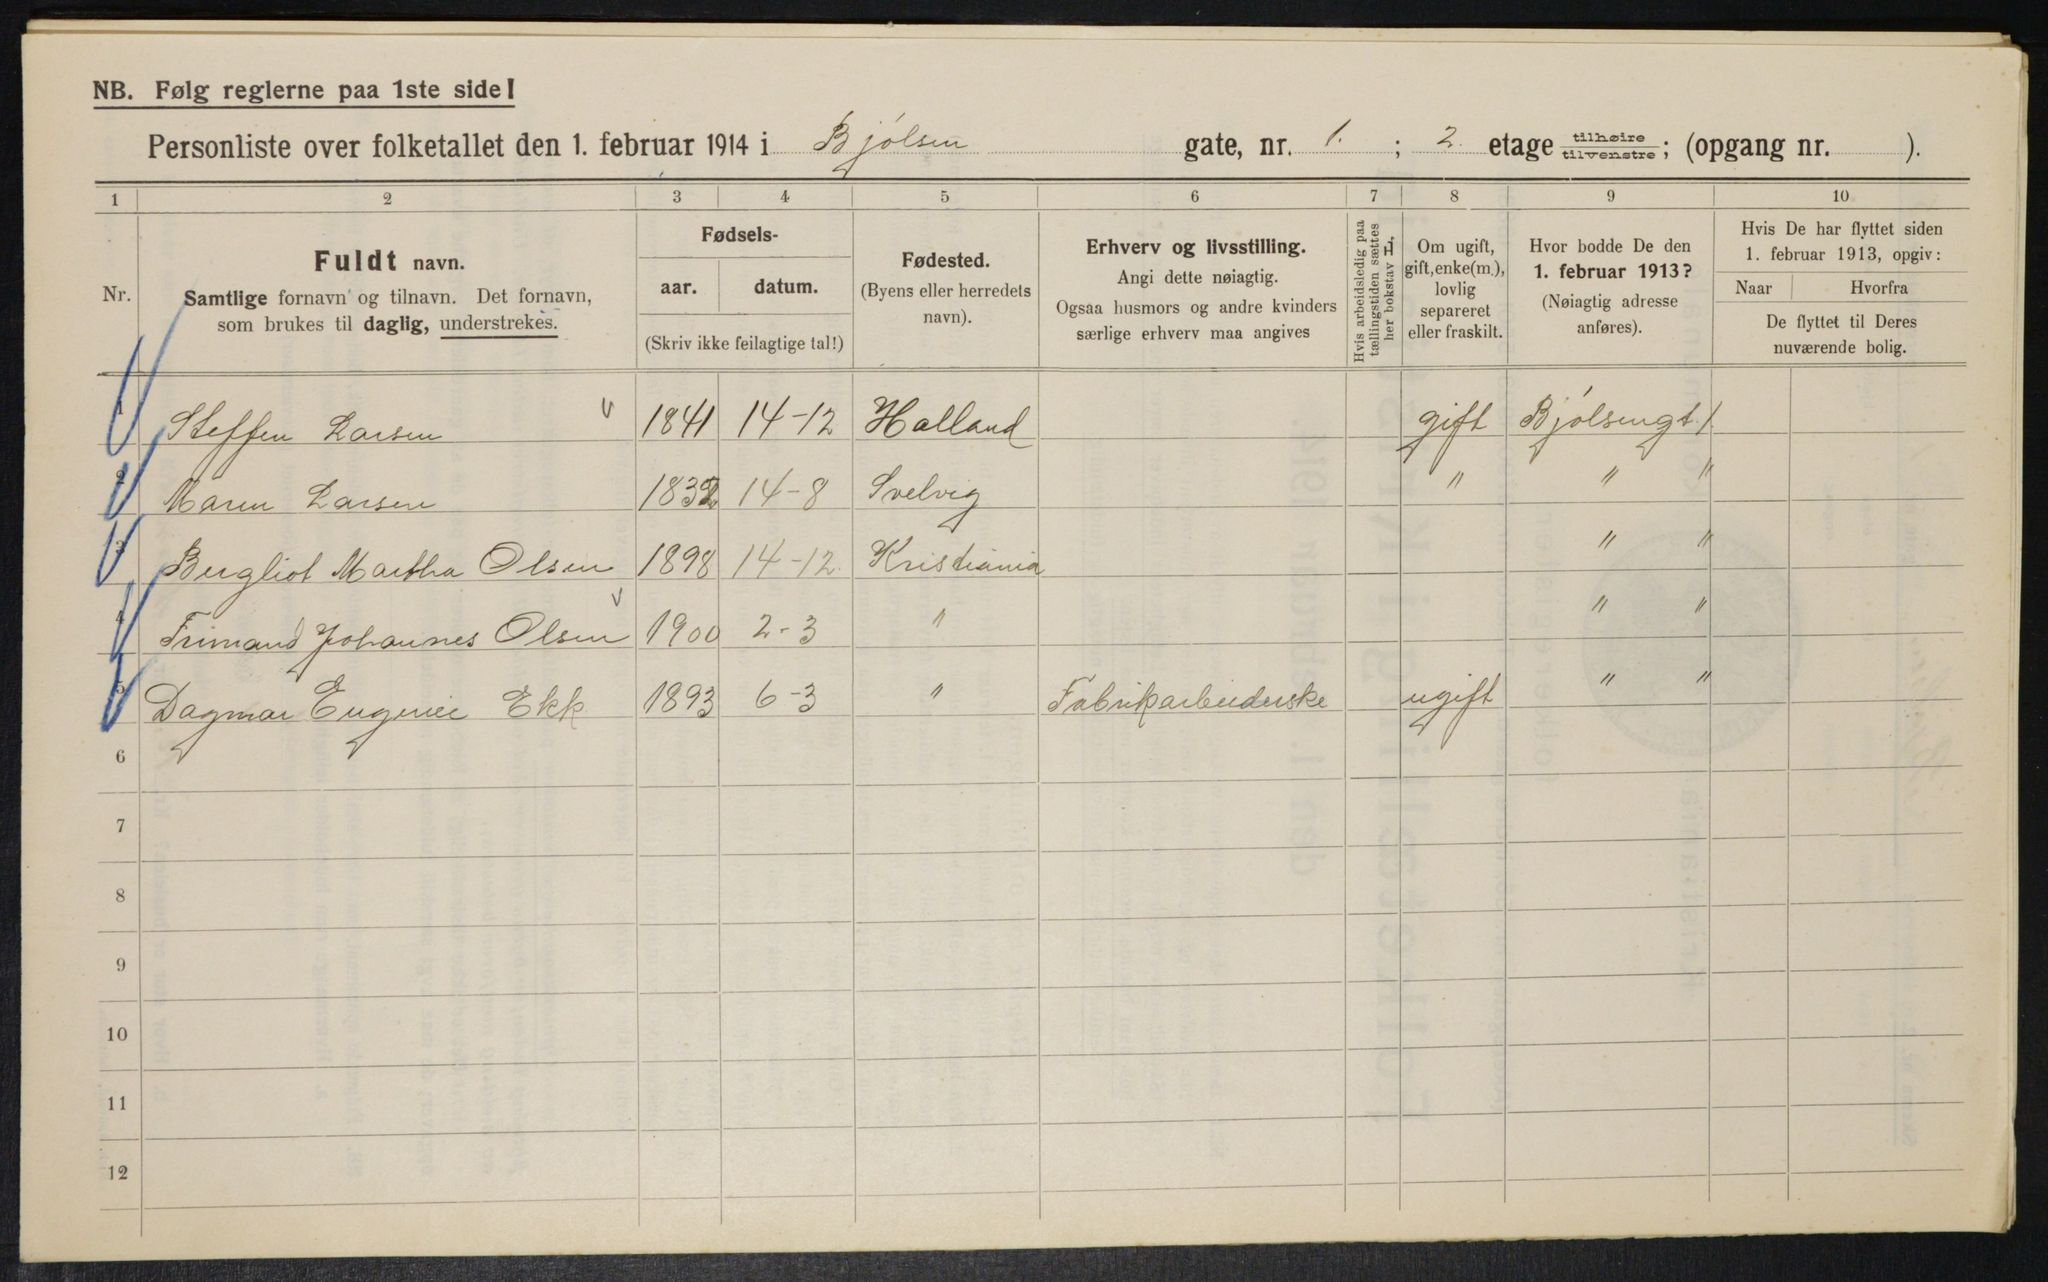 NB. Følg reglerne paa 1ste side!
Personliste over folketallet den 1. februar 1914 i Bjølsen gate, nr. 1. ; 2 etage tilhøire tilvenstre; (opgang nr. ).
1 2 3 4 5 6 7 8 9 10
Nr.
Fuldt navn.
Samtlige fornavn og tilnavn. Det fornavn,
som brukes til daglig, understrekes.
Fødsels-
aar. datum.
(Skriv ikke feilagtige tal!)
Fødested.
(Byens eller herredets
navn).
Erhverv og livsstilling.
Angi dette nøiagtig.
Ogsaa husmors og andre kvinders
særlige erhverv maa angives
Hvis arbeidsledig paa
tællingstiden sættes
her bokstav L.
Om ugift,
gift, enke(m.),
lovlig
separeret
eller fraskilt.
Hvor bodde De den
1. februar 1913?
(Nøiagtig adresse
anføres).
Hvis De har flyttet siden
1. februar 1913, opgiv:
Naar Hvorfra
De flyttet til Deres
nuværende bolig.
1 Steffen Larsen 1841 14-12 Halland gift Bjølsengt. 1
2 Maren Larsen 1832 14-8 Svelvig " " "
3 Bergliot Martha Olsen 1898 14-12 Kristiania " "
4 Johannes Olsen 1900 2-3 " " "
5 Dagmar Eugenie Ekk 1893 6-3 " Fabrikarbeiderske ugift " "
6
7
8
9
10
11
12